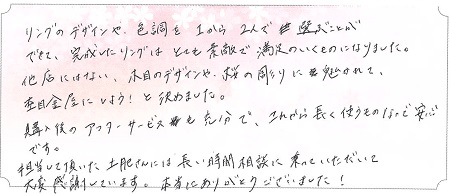 リングのデザインや、色調を1から2人で選ぶことが
できて、完成したリングはとても素敵で満足のいくものになりました。
他店にはない、木目のデザインや、桜の彫りに魅かれて、
杢目金屋にしよう!と決めました。
購入後のアフターサービスも充分で、これから長く使うものなので安心
です。
担当して頂いた土肥さんには長い時間相談に乗っていただいて
大変感謝しています。本当にありがとうございました!